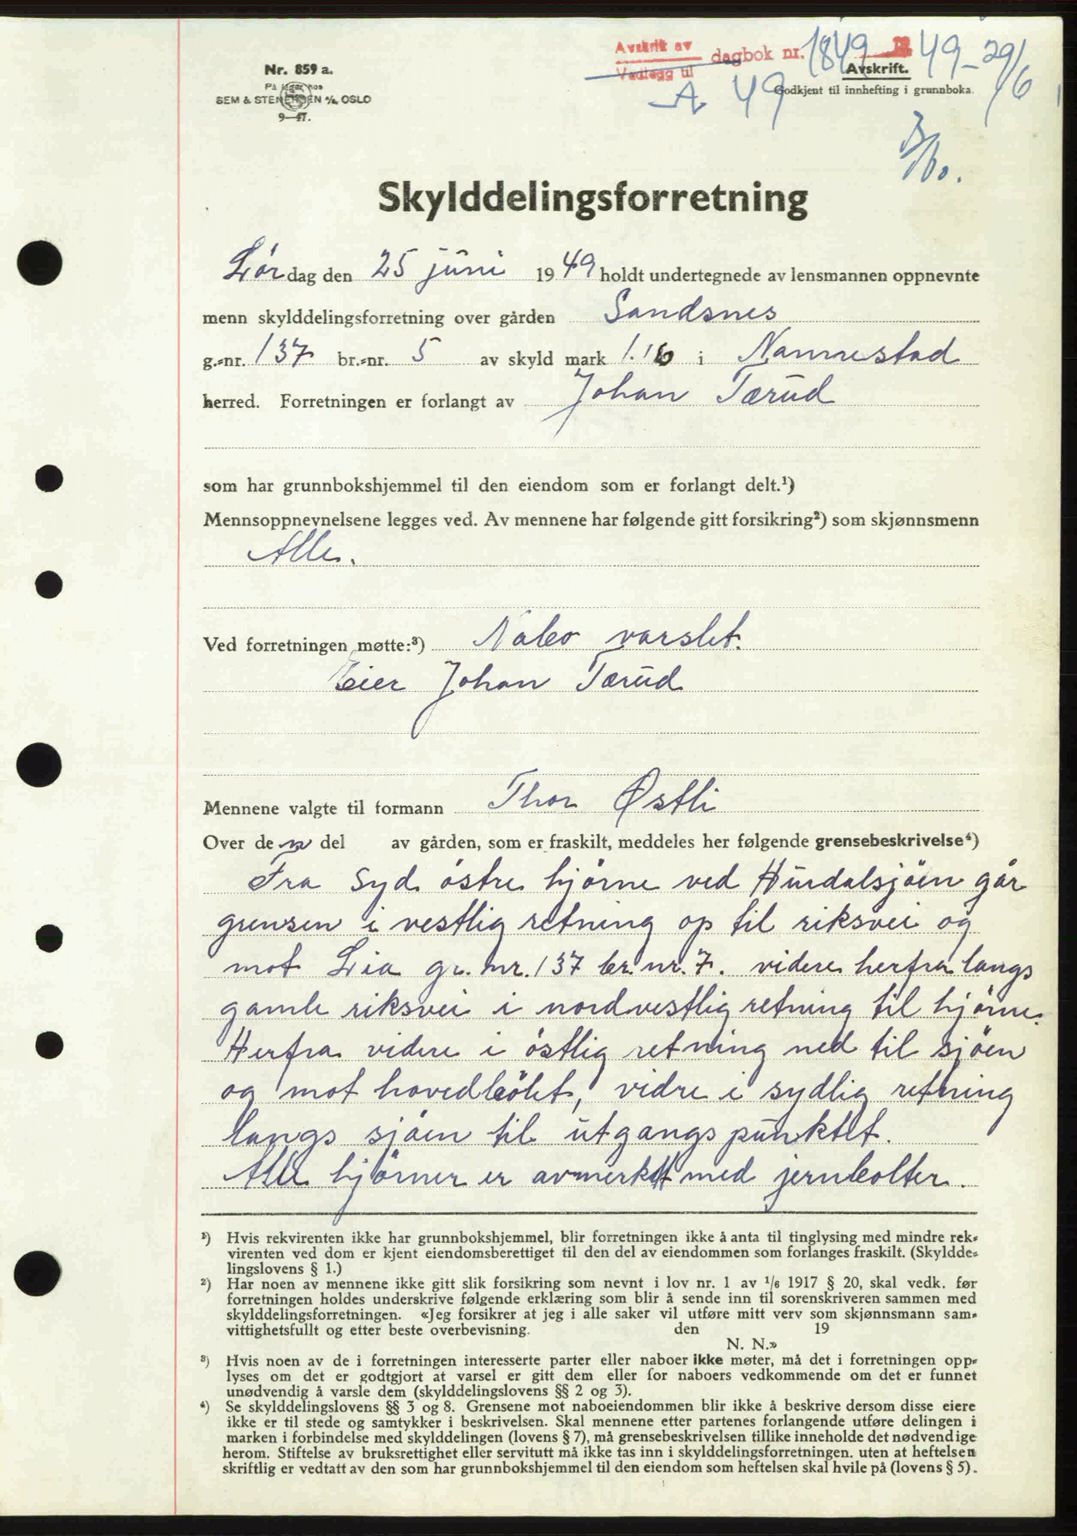 Nr. 859 a.
På lager hos
SEM & STENERSEN A/S, OSLO
9—47.
Avskrift av dagbok nr. 1849 49 - 29/6
Vedlegg til
Avskrift.
A 49
Godkjent til innhefting i grunnboka.
Skylddelingsforretning
Lør dag den 25 juni 1949 holdt undertegnede av lensmannen oppnevnte
menn skylddelingsforretning over gården Sandsnes
g.-nr. 137 br.-nr. 5 av skyld mark 1.16 i Nannestad
herred. Forretningen er forlangt av Johan Tærud
som har grunnbokshjemmel til den eiendom som er forlangt delt.¹)
Mennsoppnevnelsene legges ved. Av mennene har følgende gitt forsikring²) som skjønnsmenn
Alle.
Ved forretningen møtte:³) Nabo varslet.
Eier Johan Tærud
Mennene valgte til formann Thor Østli
Over de n del av gården, som er fraskilt, meddeles her følgende grensebeskrivelse⁴)
Fra syd östre hjörne ved Hurdalsjöen går
grensen i vestlig retning op til riksvei og
mot Lia gr. nr. 137 br. nr. 7. videre herfra langs
gamle riksvei i nordvestlig retning til hjörne.
Herfra videre i östlig retning ned til sjöen
og mot hovedbölet, vidre i sydlig retning
langs sjöen til utgangspunktet.
Alle hjörner er avmerket med jernbolter.
¹) Hvis rekvirenten ikke har grunnbokshjemmel, blir forretningen ikke å anta til tinglysing med mindre rek-
virenten ved dom er kjent eiendomsberettiget til den del av eiendommen som forlanges fraskilt. (Skyldde-
lingslovens § 1.)
²) Har noen av mennene ikke gitt slik forsikring som nevnt i lov nr. 1 av 1/6 1917 § 20, skal vedk. før
forretningen holdes underskrive følgende erklæring som blir å sende inn til sorenskriveren sammen med
skylddelingsforretningen. «Jeg forsikrer at jeg i alle saker vil utføre mitt verv som skjønnsmann sam-
vittighetsfullt og etter beste overbevisning. den 19
N. N.»
³) Hvis noen av de i forretningen interesserte parter eller naboer ikke møter, må det i forretningen opp-
lyses om det er godtgjort at varsel er gitt dem eller for naboers vedkommende om det er funnet
unødvendig å varsle dem (skylddelingslovens §§ 2 og 3).
⁴) Se skylddelingslovens §§ 3 og 8. Grensene mot naboeiendommen blir ikke å beskrive dersom disse eiere
ikke er til stede og samtykker i beskrivelsen. Skal mennene etter partenes forlangende utføre delingen i
marken i forbindelse med skylddelingen (lovens § 7), må grensebeskrivelsen tillike inneholde det nødvendige
herom. Stiftelse av bruksrettighet eller servitutt må ikke tas inn i skylddelingsforretningen, uten at heftelsen
skriftlig er vedtatt av den som har grunnbokshjemmel til den eiendom som heftelsen skal hvile på (lovens § 5).